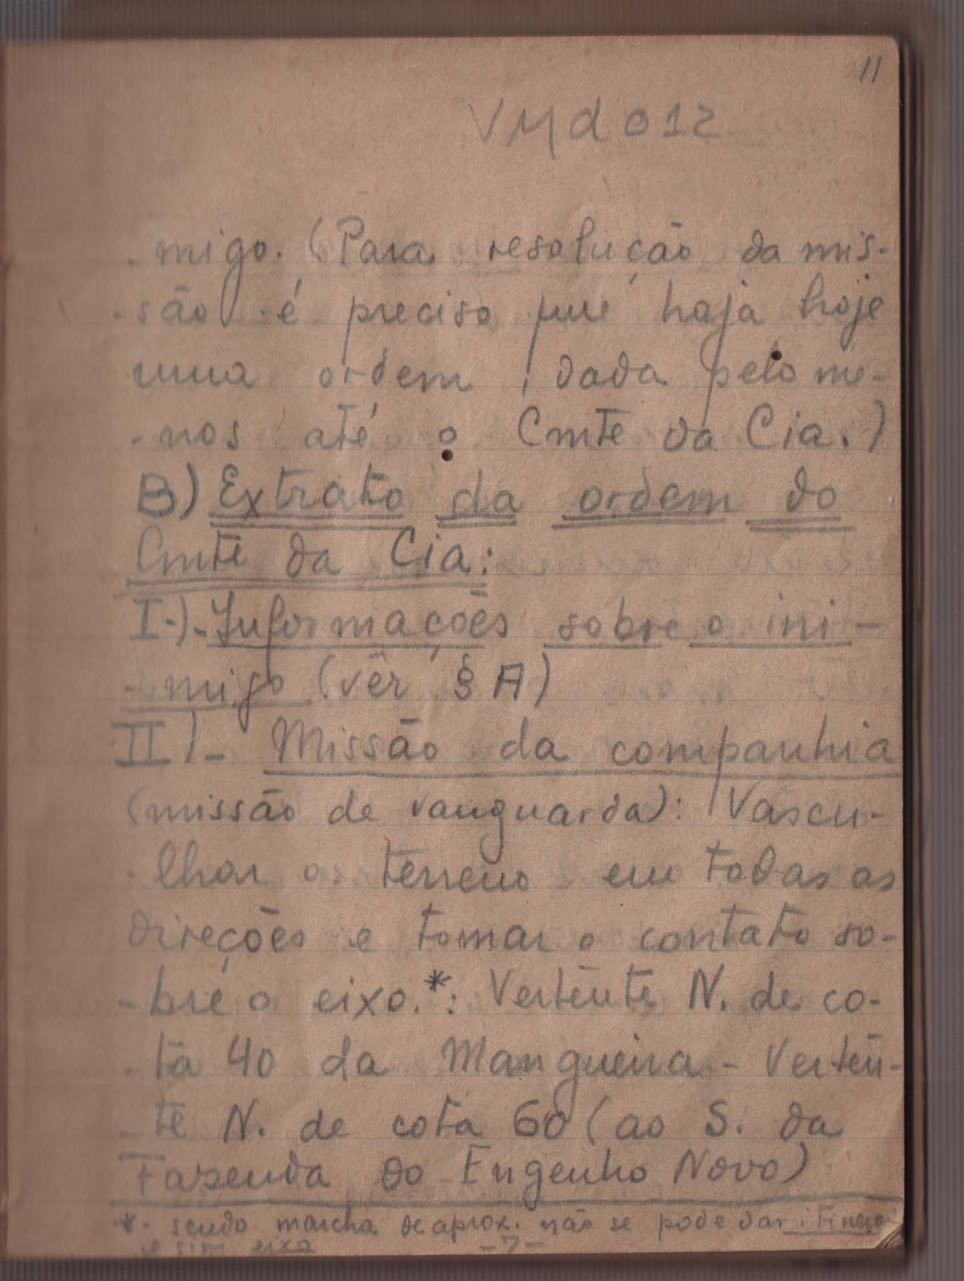 11
VMd012
migo. (Para resolução da mis-
-são é preciso que haja hoje
uma ordem, dada pelo me-
-nos até o Cmte da Cia.)
B) Extrato da ordem do
Cmte da Cia:
I-)-Informações sobre o ini-
-migo (vêr § A)
II)- Missão da companhia
(missão de vanguarda): Vascu-
-lhar o terreno em todas as
direções e tomar o contato so-
-bre o eixo.*: Vertente N. de co-
-ta 40 da Mangueira - Verten-
-te N. de cota 60 (ao S. da
Fazenda do Engenho Novo)
*- sendo marcha de aprox. não se pode dar
e sim eixo
-7-